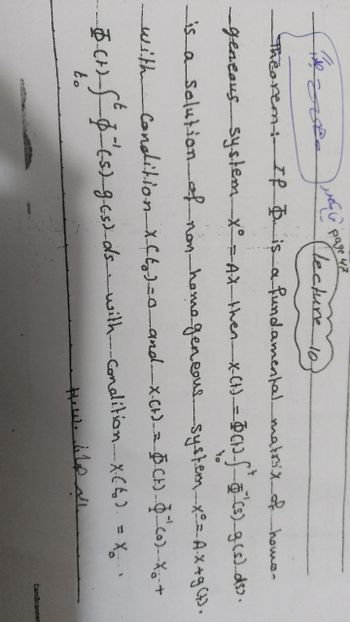 page 47
Lecture 10
Theorem: If Φ is a fundamental matrix of homo-
geneous system x° = Ax then x(t) = Φ(t) ∫_{t₀}^{t} Φ⁻¹(s) g(s) ds.
is a solution of non homogeneous system x° = Ax + g(t),
with condition x(t₀) = 0 and x(t) = Φ(t) Φ⁻¹(0) x₀ +
Φ(t) ∫_{t₀}^{t} Φ⁻¹(s) g(s) ds with condition x(t₀) = x₀.
CamScanner